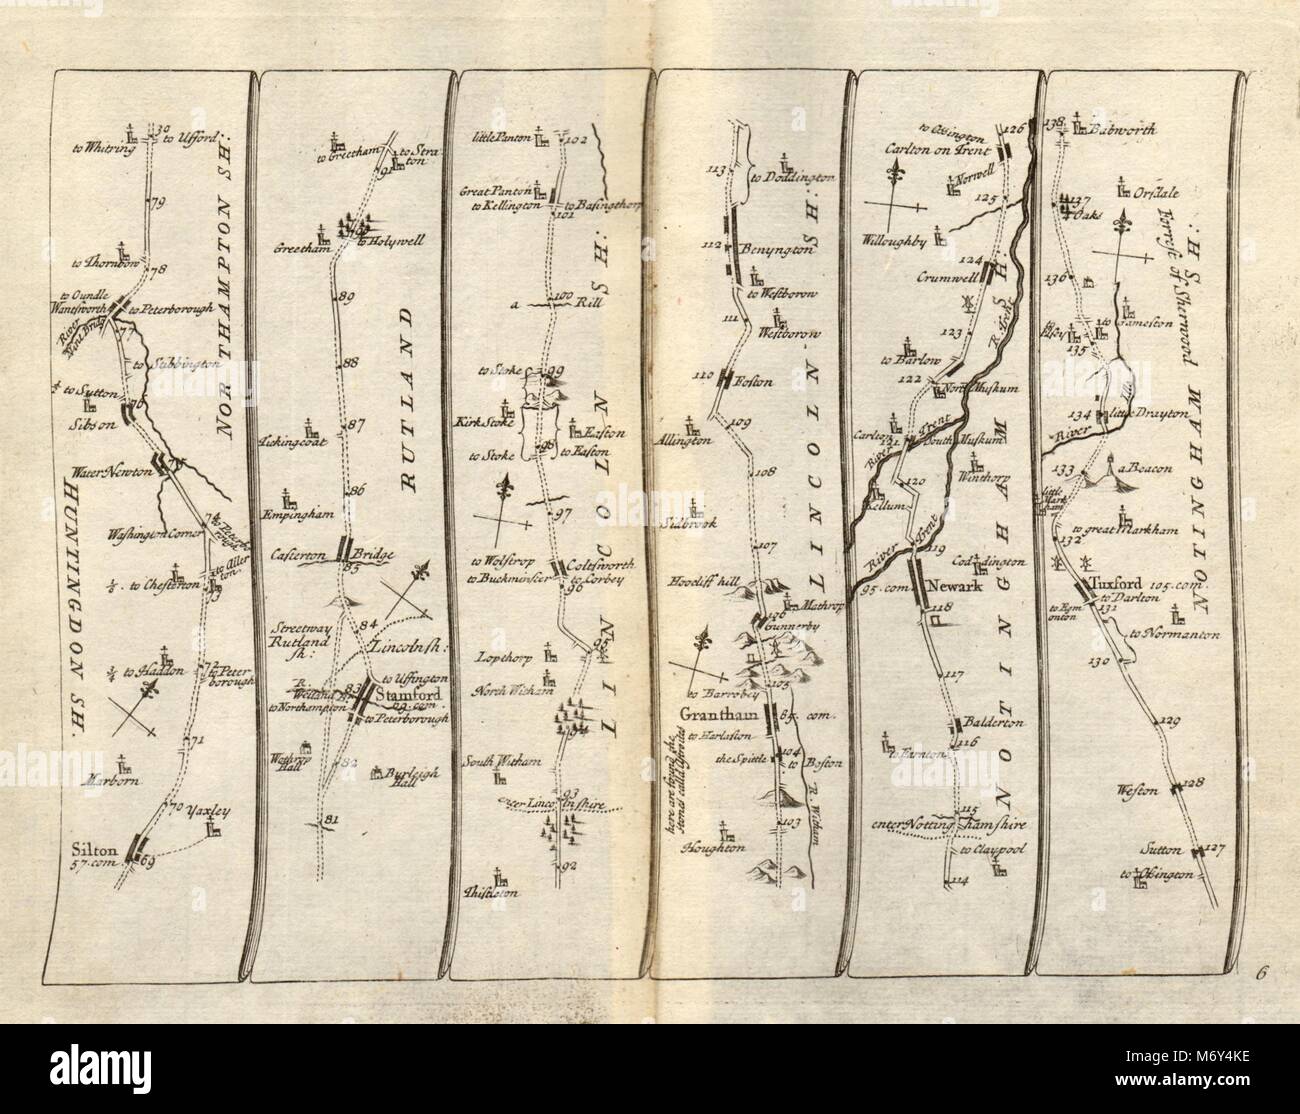 30
to Whitring
to Ufford
79
to Thornbow
78
to Oundle
Wantsworth
to Peterborough
River
77
to Stibbington
to Sutton
76
Sibson
Water Newton
75
74
to Peterborough
Washington Corner
to Allerton
to Chesterton
73
72
to Haddon
to Peterborough
71
Marborn
70
Yaxley
Silton
57.com
69
HUNTINGDON SH.
NORTHAMPTON SH:
to Greetham
to Straton
91
Greetham
to Holywell
89
88
87
Tickingcoat
86
Empingham
Casterton
Bridge
85
84
Streetway
Rutland
sh:
Lincolnsh:
to Uffington
R.
Welland
83
Stamford
69.com
to Northampton
to Peterborough
82
Wothrop
Hall
Burleigh
Hall
81
RUTLAND
little Panton
102
Great Panton
to Kellington
to Basingthorp
101
100
a Rill
to Stoke
99
Kirk Stoke
Easton
98
to Stoke
to Easton
97
to Wolstrop
Coltsworth
to Buckminster
to Corbey
96
95
Lopthorp
North Witham
94
South Witham
93
enter Lincolnshire
92
Thistleton
LINCOLN SH:
113
to Doddington
112
Benyngton
to Westborow
111
Westborow
110
Foston
109
Allington
108
Sidbrook
107
Hoocliff hill
106
Mathrop
Gunnerby
105
to Barrobey
Grantham
85.com.
to Harlaston
104
the Spittle
to Boston
here are found the
stones called Astroites
103
R. Witham
Houghton
LINCOLN-SH:
to Ossington
126
Carlton on Trent
Norwell
125
Willoughby
124
Crumwell
R. Trent
123
to Barlow
122
North Muskum
Carlton
121
South Muskum
River Trent
Winthorp
120
Kellum
River Trent
119
Coddington
95.com.
Newark
118
117
Balderton
116
to Farnton
115
enter Nottinghamshire
to Claypool
114
NOTINGHAM SH:
138
Babworth
137
Oaks
Orsdale
Forrest of Sherwood
136
to Elsley
to Gameston
135
Idle
134
little Drayton
River
133
a Beacon
little Markham
to great Markham
132
Tuxford
105.com.
to Darlton
to Egmonton
131
to Normanton
130
129
128
Weston
Sutton
127
to Ossington
NOTINGHAM SH:
6
alamy
Image ID: M6Y4KE
www.alamy.com